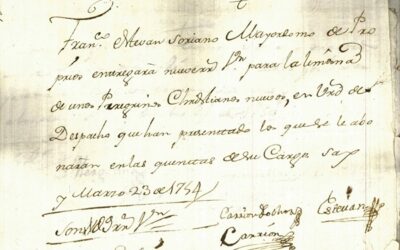 Fran.co Estevan Soriano Mayordomo de Pro
pios entregará nueve rr.s v.n para la limosna
de unos Peregrinos Christianos nuevos, en Vrd de
Despacho que han presentado los que se le abo
naran en las quentas de su Cargo Sax
y Marzo 23 de 1754
Son 9 rr.s v.n
Carrion
Estevan